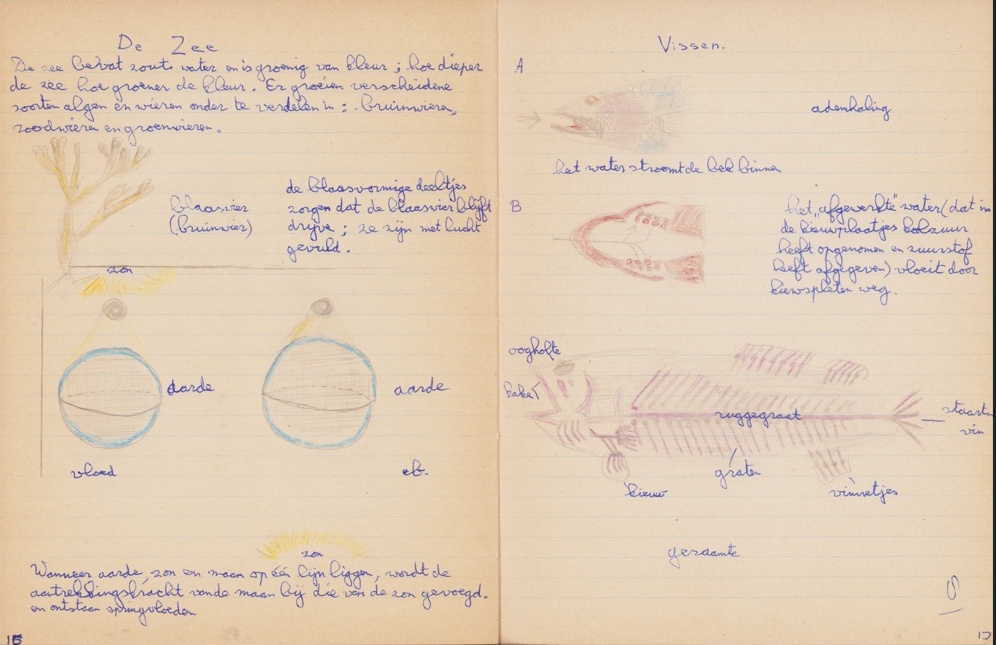 De Zee
De zee bevat zout water en is groenig van kleur ; hoe dieper
de zee hoe groener de kleur. Er groeien verscheidene
soorten algen en wieren onder te verdelen in : bruinwieren,
roodwieren en groenwieren.
blaaswier
(bruinwier)
de blaasvormige deeltjes
zorgen dat de blaaswier blijft
drijve ; ze zijn met lucht
gevuld.
zon
aarde
aarde
vloed
eb.
zon
Wanneer aarde, zon en maan op één lijn liggen, wordt de
aantrekkingskracht van de maan bij die van de zon gevoegd.
en ontstaan springvloeden
15
Vissen.
A
ademhaling
het water stroomt de bek binne
B
het „afgewerkte" water (dat in
de kieuwplaatjes koolzuur
heeft opgenomen en zuurstof
heeft afgegeven) vloeit door
kiewspleten weg.
oogholte
kake
ruggegraat
staart
vin
graten
kieuw
vinnetjes
geraamte
17